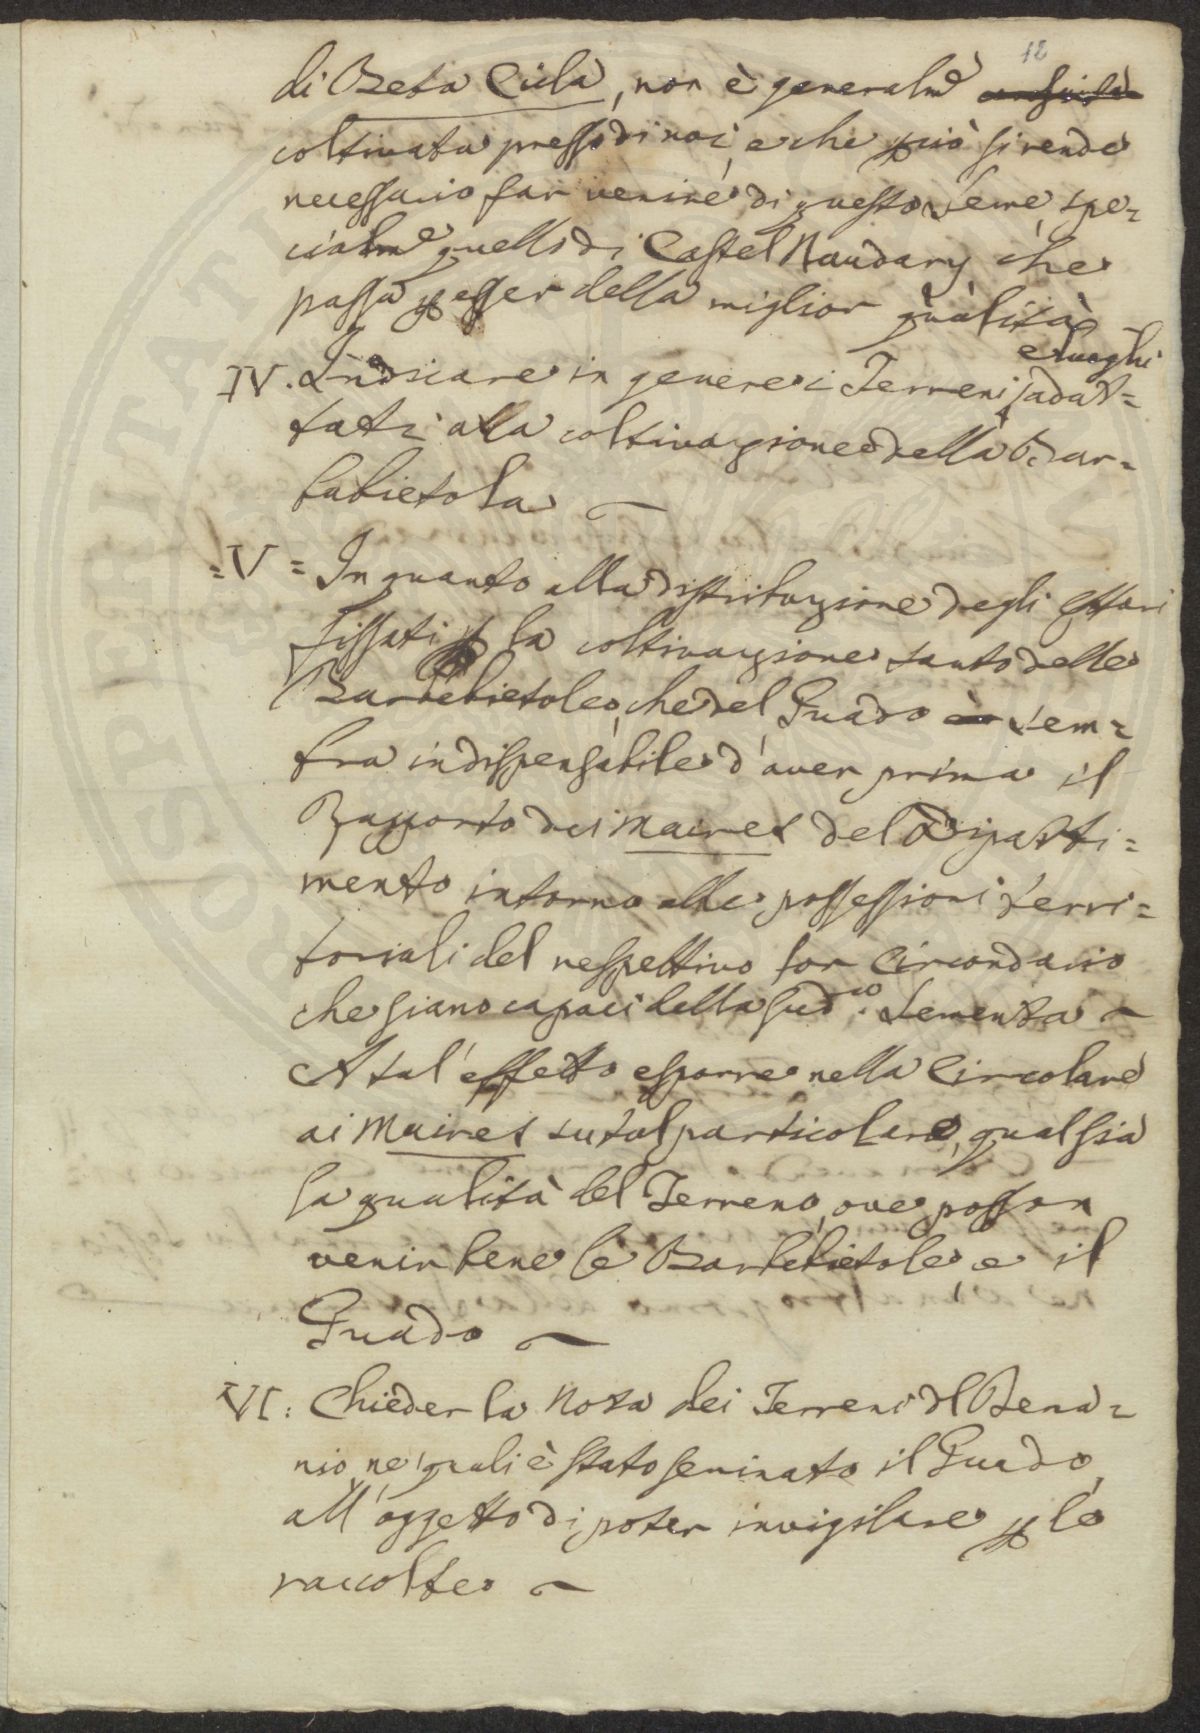 18
di Beta Cicla, non è generalme
coltivata presso di noi, e che pciò si rende
necessario far venire di questo seme, spe=
cialme quello di Castel Naudary che
passa p esser della miglior qualità
e luoghi
IV. Indicare in genere i Terreni, adat=
tati alla coltivazione della Bar=
babietola ~
=V= In quanto alla distribuzione degli ettari
fissati p la coltivazione tanto delle
Barbebietole, che del Guado è sem=
bra indispensabile d'aver prima il
Rapporto dei Maires del Diparti=
mento intorno alle possessioni terri=
toriali del respettivo lor Circondario
che siano capaci della sud.a Sementa ~
A tal'effetto esporre nella Circolare
ai Maires su tal particolare, qual sia
la qualità del Terreno, ove posson
venir bene le Barbebietole, e il
Guado ~
VI: Chieder la Nota dei Terreni dl Dema=
nio, ne' quali è stato seminato il Guado,
all'oggetto di poter invigilare p le
raccolte. ~